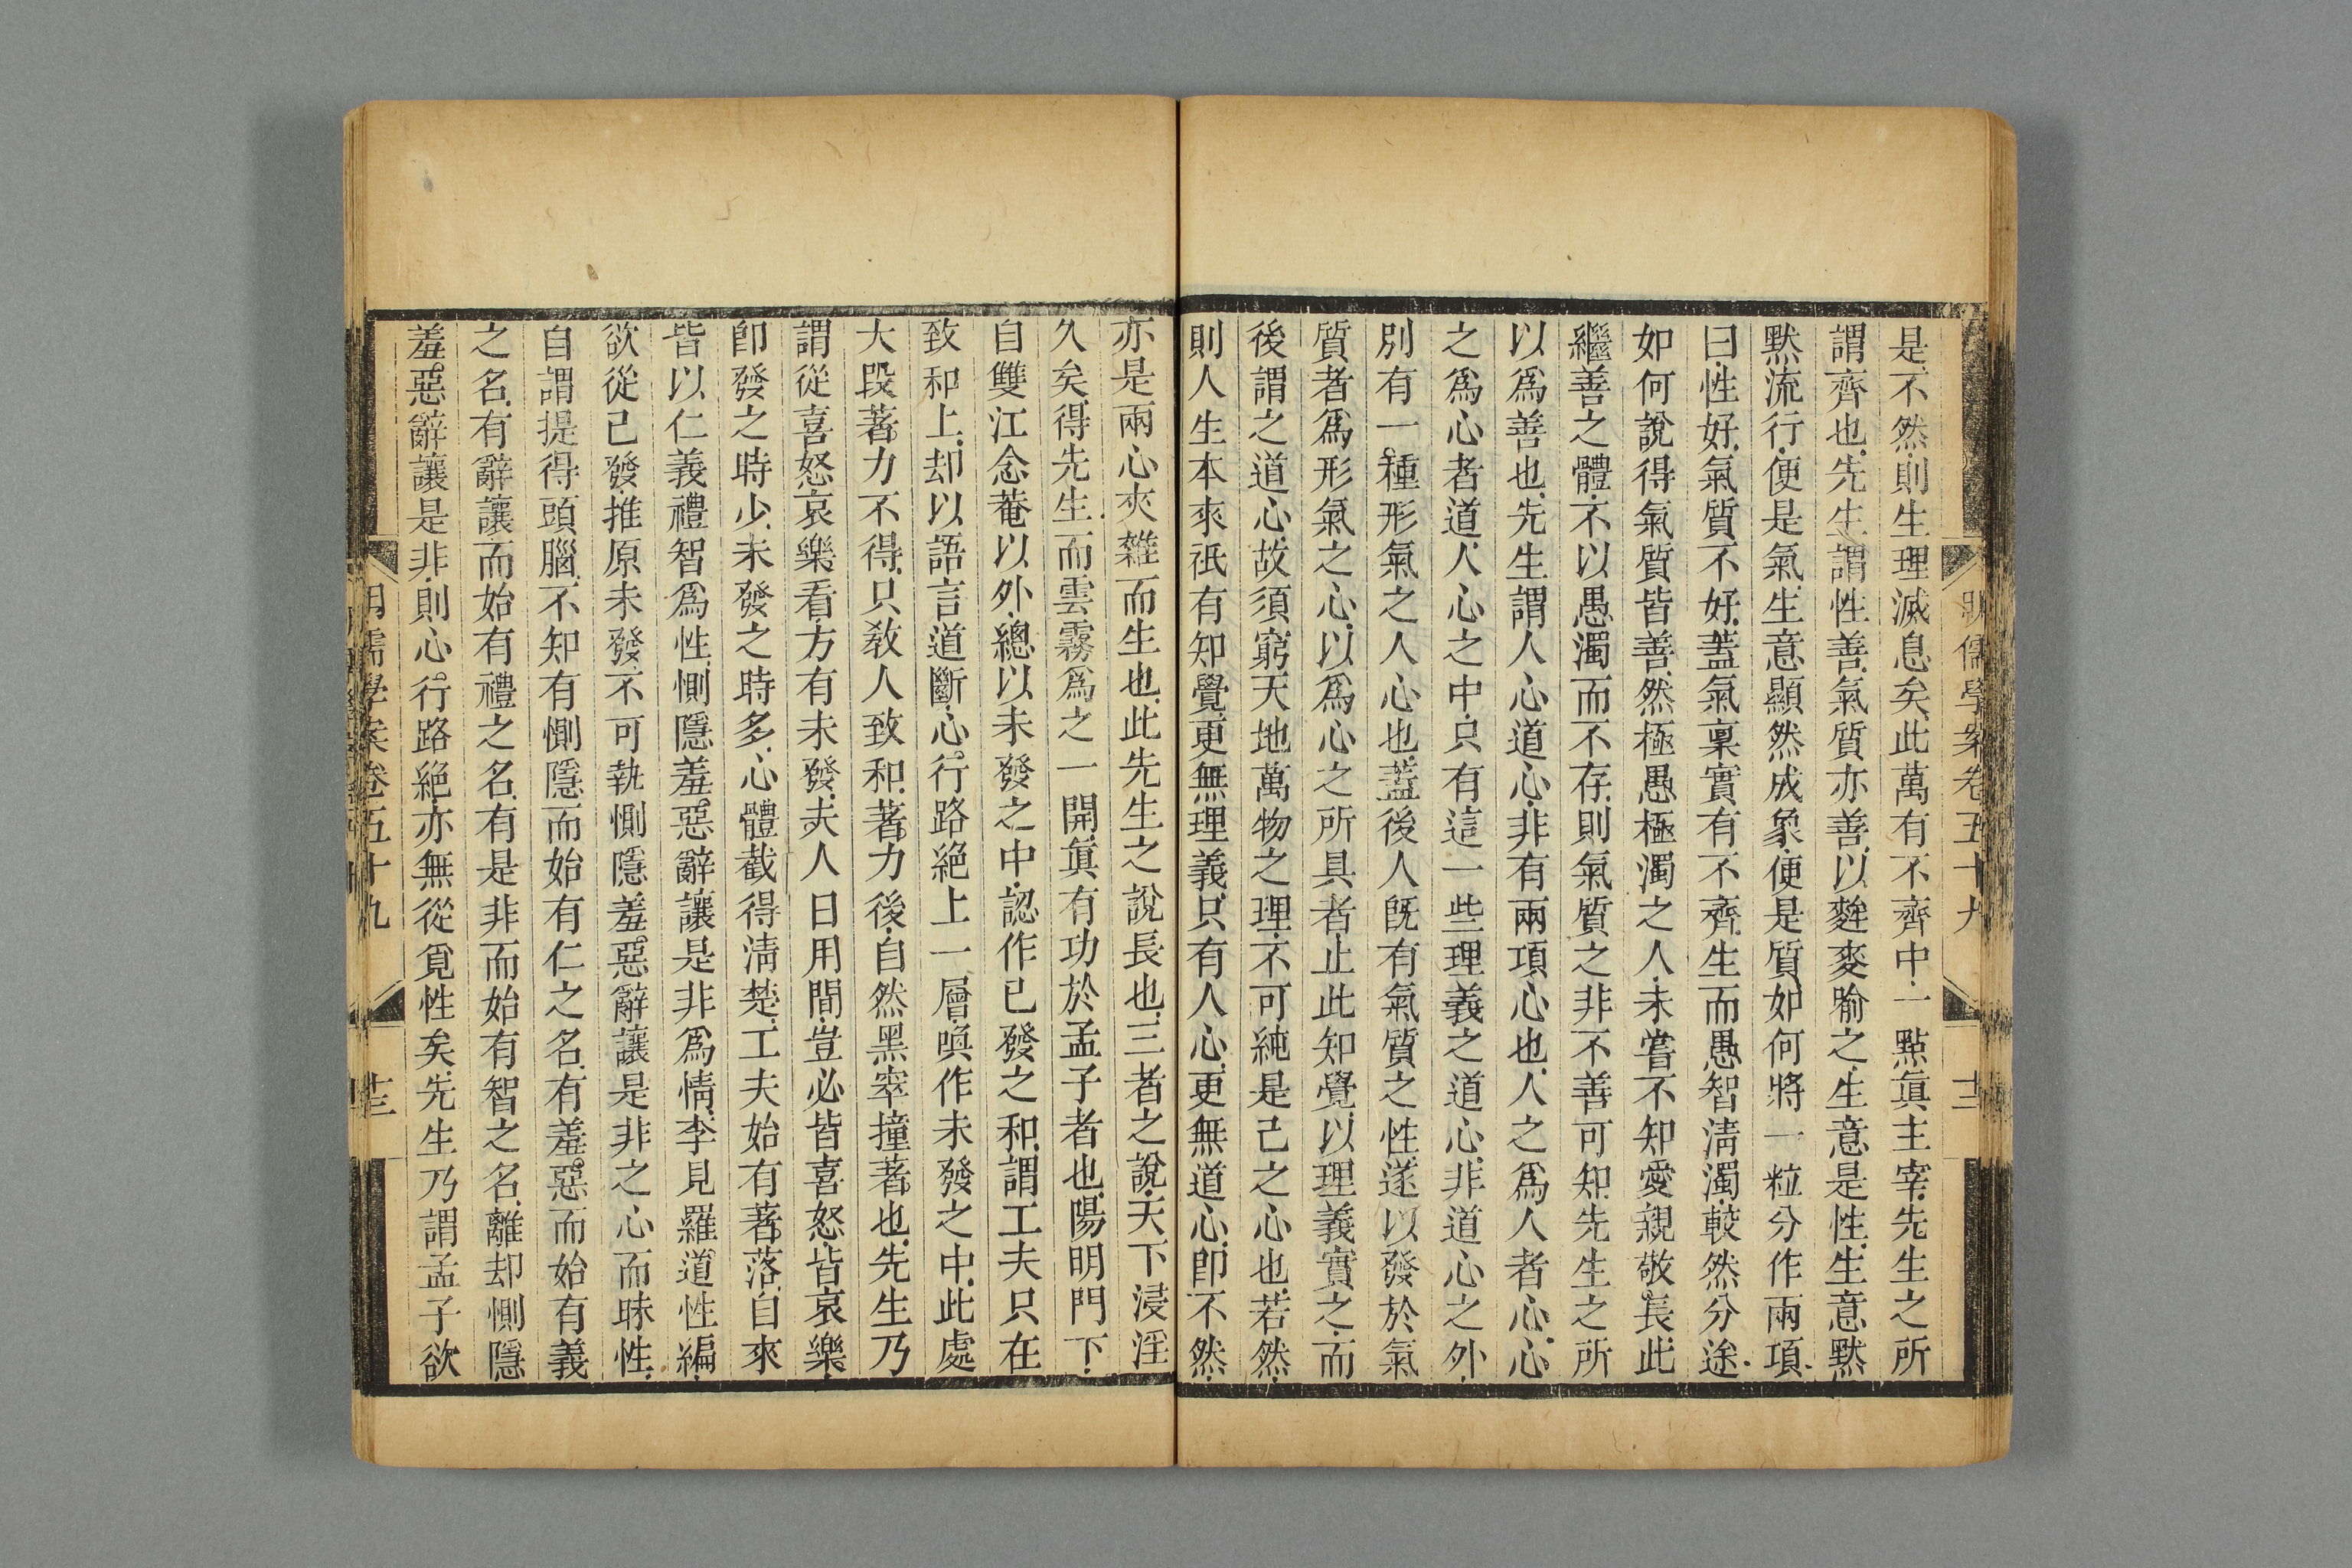 是不然則生理滅息矣此萬有不齊中一點眞主宰先生之所
謂齊也先生謂性善氣質亦善以麰麥喻之生意是性生意默
默流行便是氣生意顯然成象便是質如何將一粒分作兩項
曰性好氣質不好蓋氣稟實有不齊生而愚智淸濁較然分途
如何說得氣質皆善然極愚極濁之人未嘗不知愛親敬長此
繼善之體不以愚濁而不存則氣質之非不善可知先生之所
以爲善也先生謂人心道心非有兩項心也人之爲人者心心
之爲心者道人心之中只有這一些理義之道心非道心之外
別有一種形氣之人心也蓋後人旣有氣質之性遂以發於氣
質者爲形氣之心以爲心之所具者止此知覺以理義實之而
後謂之道心故須窮天地萬物之理不可純是己之心也若然
則人生本來祇有知覺更無理義只有人心更無道心卽不然
亦是兩心夾雜而生也此先生之說長也三者之說天下浸淫
久矣得先生而雲霧爲之一開眞有功於孟子者也陽明門下
自雙江念菴以外總以未發之中認作已發之和謂工夫只在
致和上却以語言道斷心行路絶上一層喚作未發之中此處
大段著力不得只敎人致和著力後自然黑窣撞著也先生乃
謂從喜怒哀樂看方有未發夫人日用間豈必皆喜怒皆哀樂
卽發之時少未發之時多心體截得淸楚工夫始有著落自來
皆以仁義禮智爲性惻隱羞惡辭讓是非爲情李見羅道性編
欲從已發推原未發不可執惻隱羞惡辭讓是非之心而昧性
自謂提得頭腦不知有惻隱而始有仁之名有羞惡而始有義
之名有辭讓而始有禮之名有是非而始有智之名離却惻隱
羞惡辭讓是非則心行路絶亦無從覓性矣先生乃謂孟子欲
明儒學案卷五十九
十三